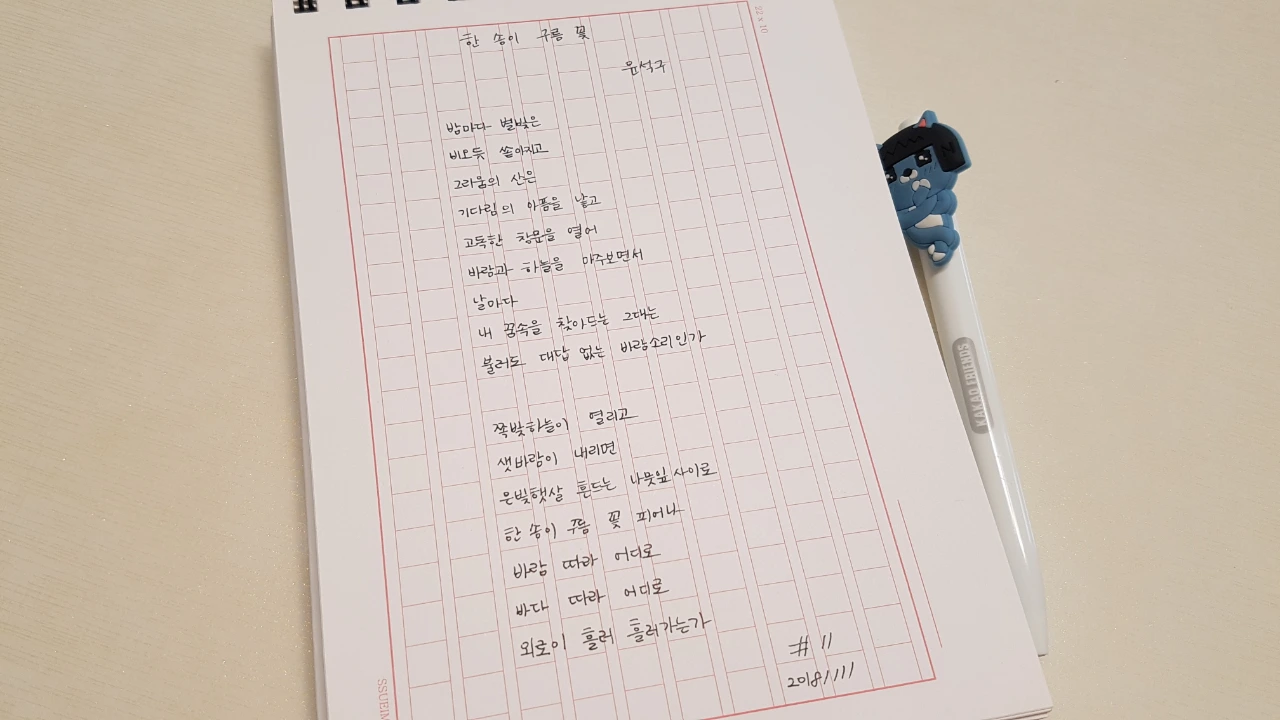 22 x 10
한 송이 구름 꽃
윤석구
밤마다 별빛은
비오듯 쏟아지고
그리움의 산은
기다림의 아픔을 낳고
고독한 창문을 열어
바람과 하늘을 마주보면서
날마다
내 꿈속을 찾아드는 그대는
불러도 대답 없는 바람소리인가
쪽빛하늘이 열리고
샛바람이 내리면
은빛햇살 흔드는 나뭇잎사이로
한 송이 구름 꽃 피어나
바람 따라 어디로
바다 따라 어디로
외로이 흘러 흘러가는가
# 11
20181111
KAKAO FRIENDS